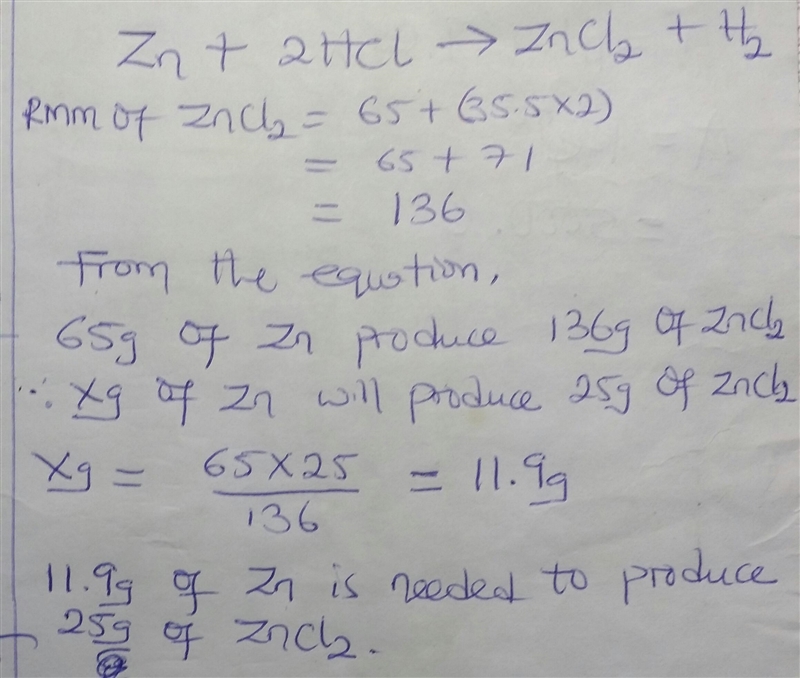 Zn + 2HCl → ZnCl₂ + H₂
RMM of ZnCl₂ = 65 + (35.5×2)
= 65 + 71
= 136
From the equation,
65g of Zn produce 136g of ZnCl₂
∴ xg of Zn will produce 25g of ZnCl₂
xg = 65×25/136 = 11.9g
11.9g of Zn is needed to produce
25g of ZnCl₂.